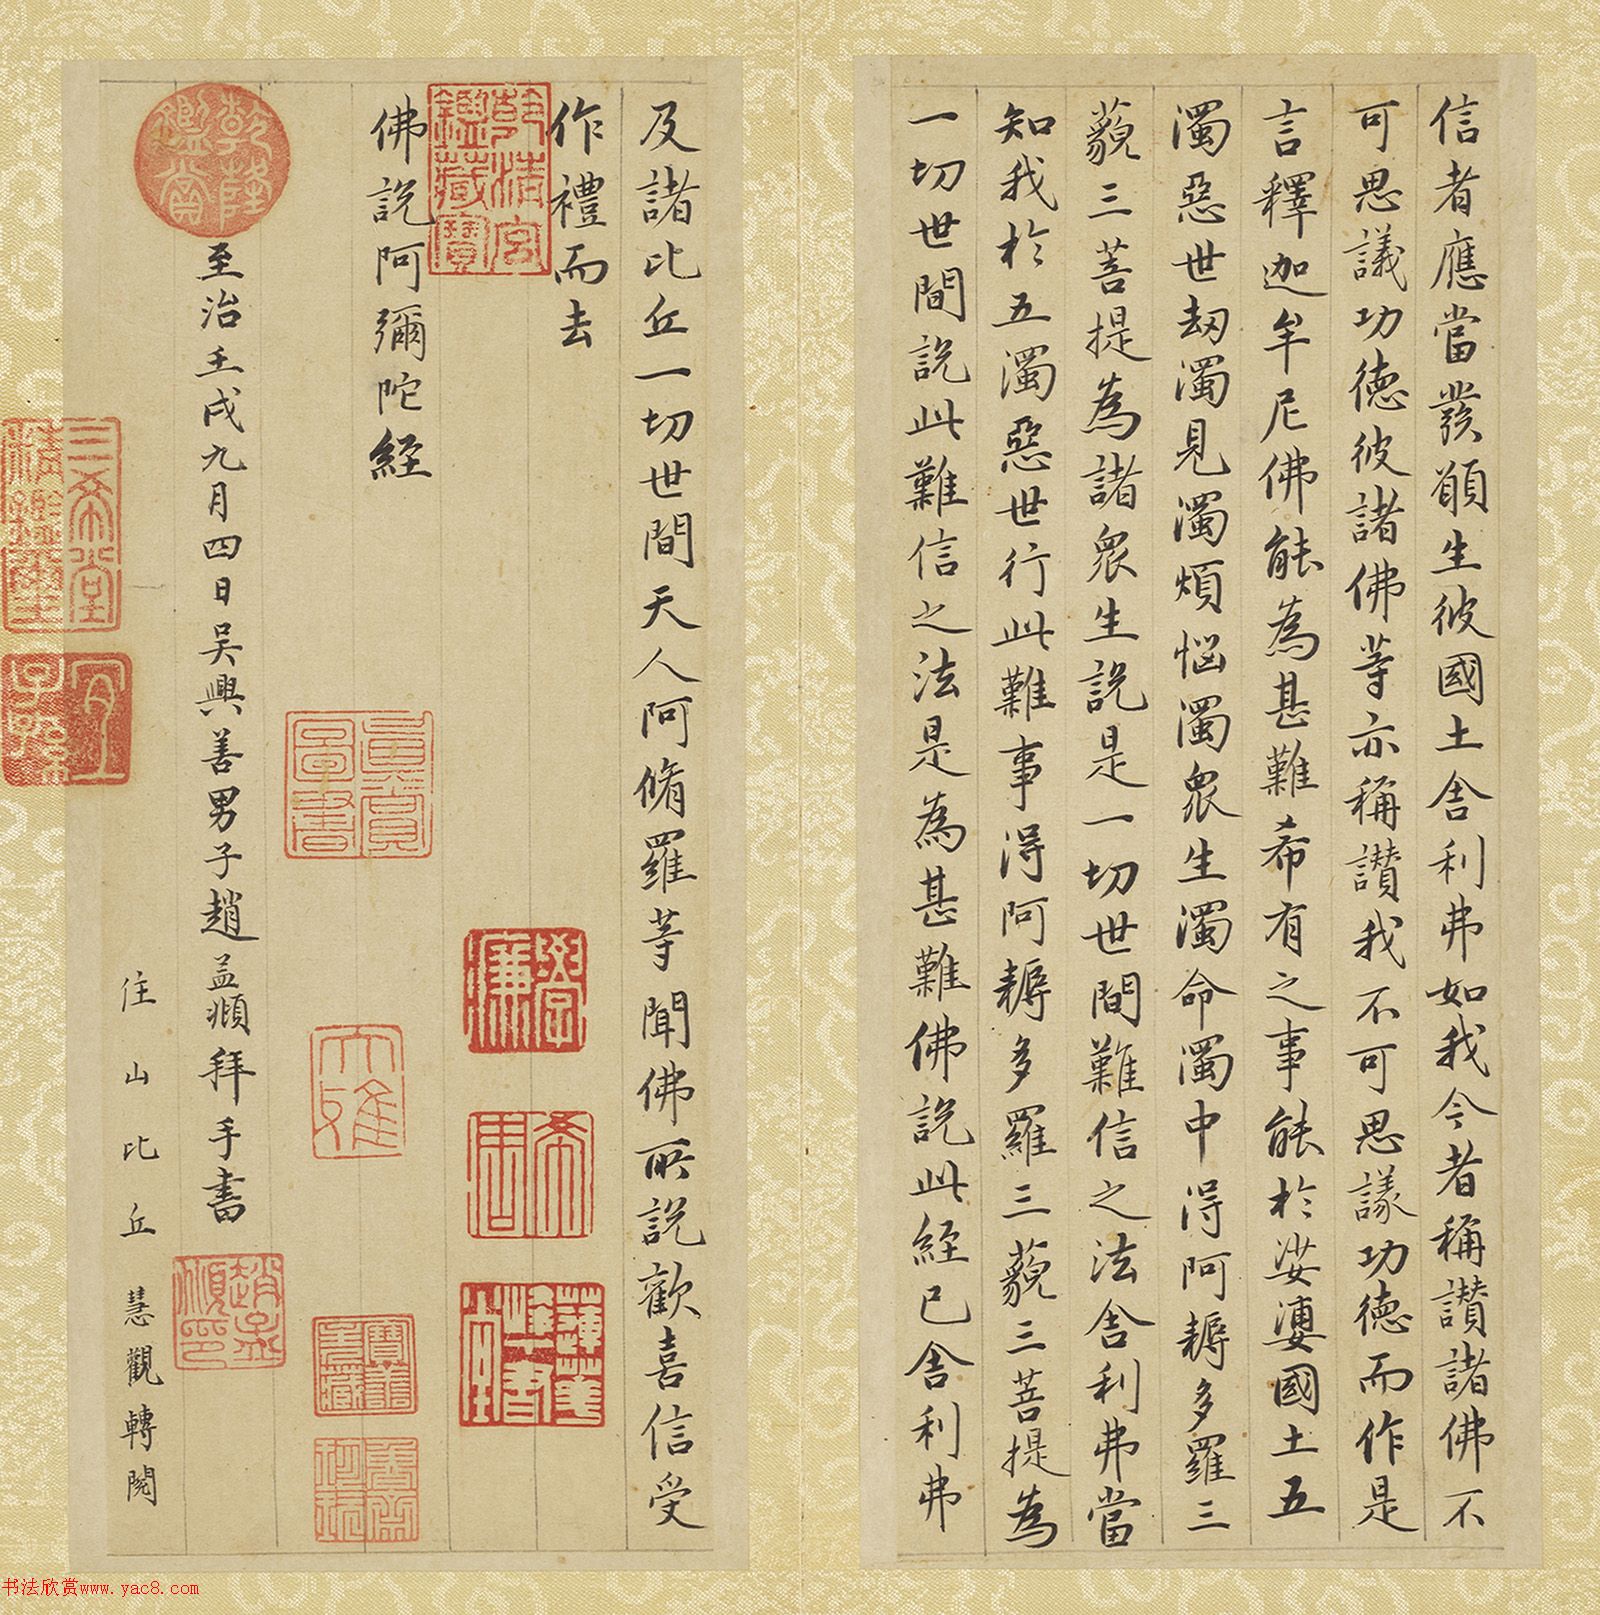 信者應當發願生彼國土舍利弗如我今者稱讚諸佛不
可思議功德彼諸佛等亦稱讚我不可思議功德而作是
言釋迦牟尼佛能為甚難希有之事能於娑婆國土五
濁惡世劫濁見濁煩惱濁眾生濁命濁中得阿耨多羅三
藐三菩提為諸眾生說是一切世間難信之法舍利弗當
知我於五濁惡世行此難事得阿耨多羅三藐三菩提為
一切世間說此難信之法是為甚難佛說此經已舍利弗
及諸比丘一切世間天人阿脩羅等聞佛所說歡喜信受
作禮而去
佛說阿彌陀經
至治壬戌九月四日吳興善男子趙孟頫拜手書
住山比丘慧觀轉閱
乾隆鑑賞
乾清宮鑑藏寶
三希堂精鑑璽
宜子孫
真賞圖書
大雅
趙孟頫印
書法欣赏www.yac8.com